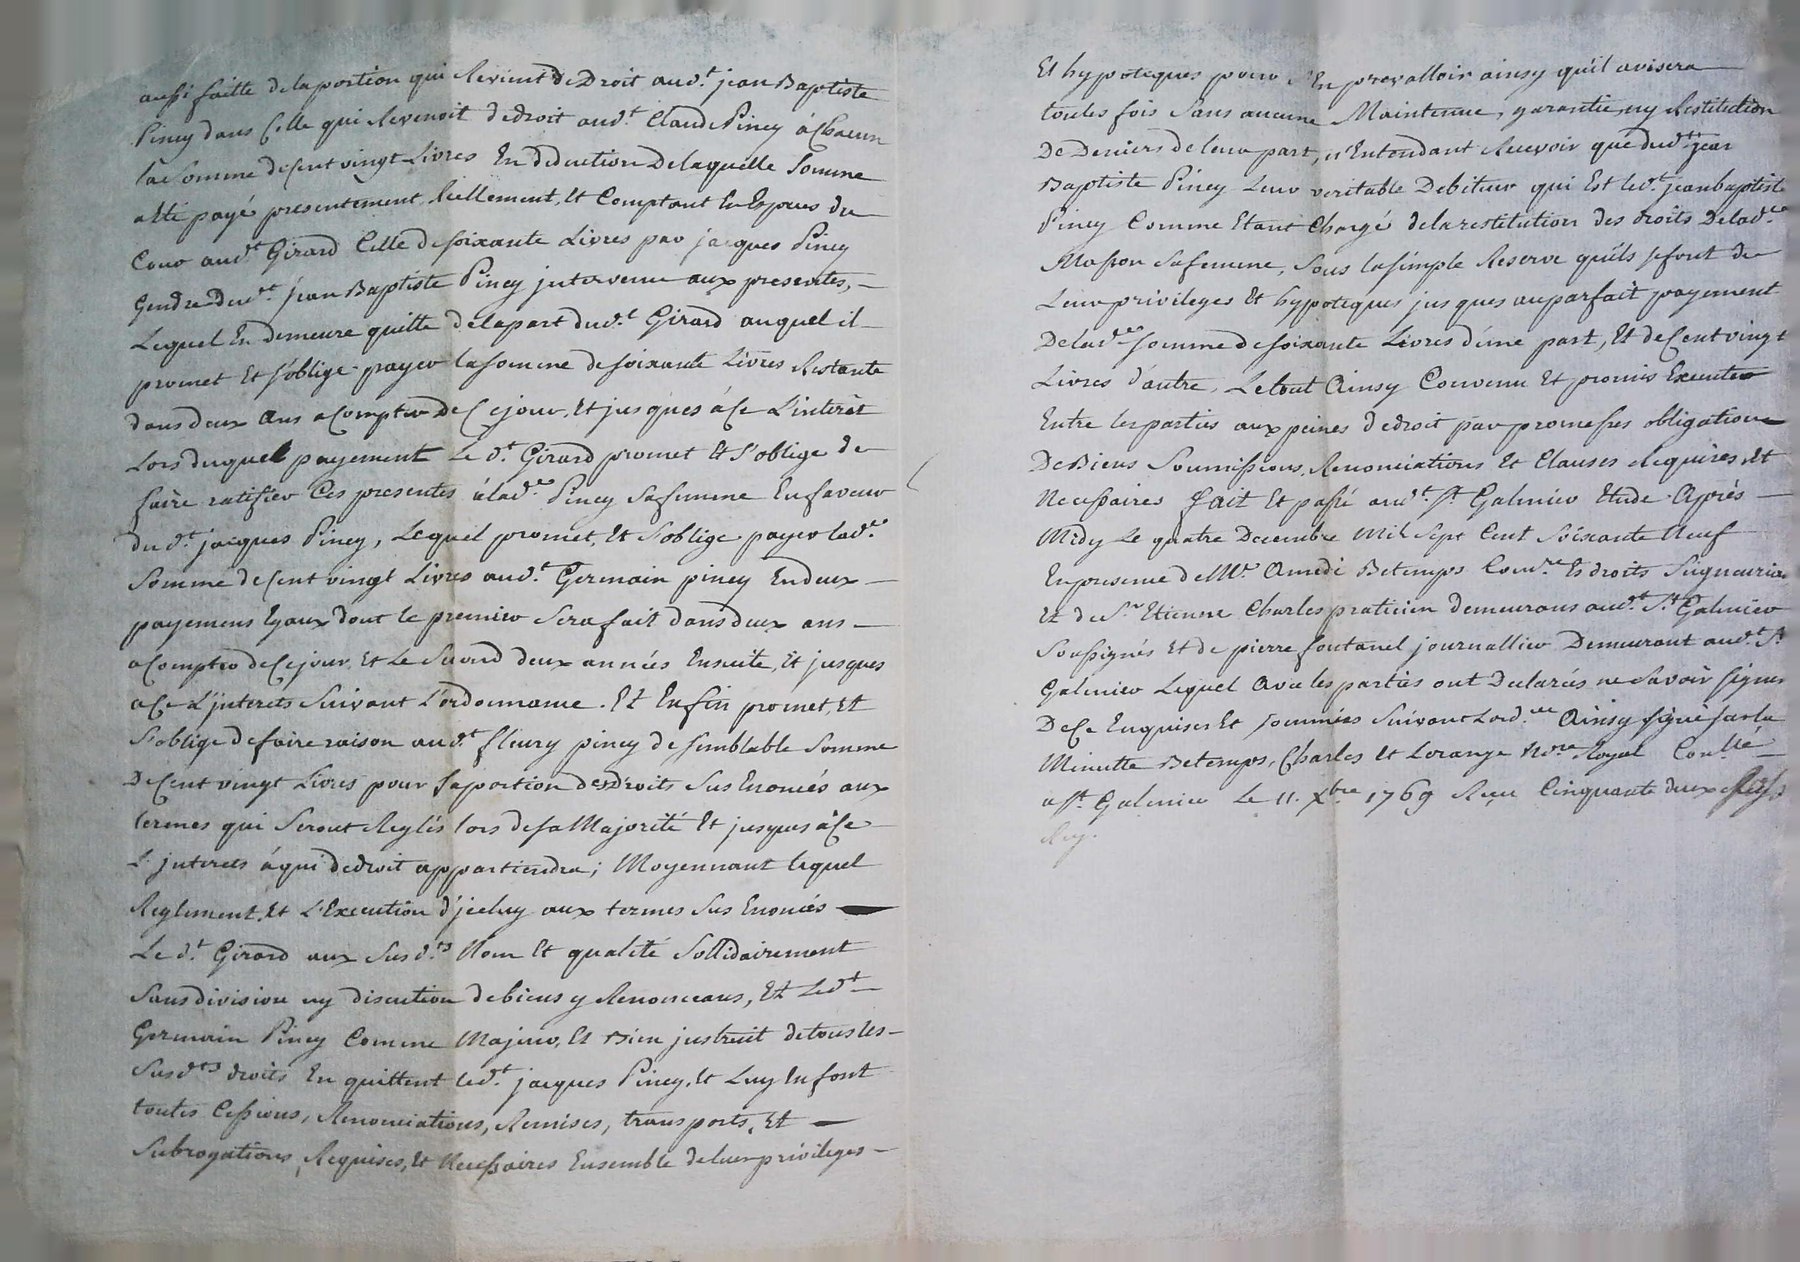 aussi faitte de la portion qui Revient de Droit aud.t jean Baptiste
Piney dans Celle qui Revenoit de droit aud.t Claude Piney à Chacun
la Somme de Cent vingt Livres En deduction De laquelle Somme
a Eté payé presentement, Réellement, Et Comptant En Especes du
Cour aud.t Girard Celle de soixante Livres par jacques Piney
Gendre dud.t jean Baptiste Piney jntervenu aux presentes,
Lequel En demeure quitte de la part dud.t Girard auquel il
promet Et s'oblige payer la somme de soixante Livres Restante
dans deux Ans a Compter de Cejour, Et jusques à Ce L'interêt
Lors duquel payement Le d.t Girard promet Et S'oblige de
faire ratifier Ces presentes à lad.e Piney Sa femme En faveur
du d.t jacques Piney, Lequel promet, Et S'oblige payer lad.e
Somme de Cent vingt Livres aud.t Germain piney En deux
payemens Egaux dont le premier Sera fait dans deux ans
a Compter de Cejour, Et Le Second deux années Ensuite, Et jusques
a Ce L'jnterets Suivant L'ordonnance. Et Enfin promet, Et
S'oblige de faire raison aud.t fleury piney de semblable Somme
De Cent vingt Livres pour sa portion des Droits Sus Enoncés aux
termes qui Seront Reglés lors de sa Majorité Et jusques à Ce
L'jnterets à qui de droit appartiendra; Moyennant lequel
Reglement, Et L'Execution d'jceluy aux termes Sus Enoncés
Le d.t Girard aux Susd.ts Nom Et qualité Sollidairement
Sans division ny discution de biens y Renonceans, Et Led.t
Germain Piney Comme Majeur, Et Bien jnstruit de tous les
Susd.ts droits En quittent led.t jacques Piney, Et Luy En font
toutes Cessions, Renonciations, Remises, transports, Et
Subrogations Requises, Et Necessaires Ensemble de leur privileges
Et hypoteques pour S'En prevalloir ainsy qu'il avisera
toutes fois Sans aucune Maintenue, garantie, ny Restitution
De Deniers de leur part, n'Entendant Recevoir que dud.t jean
Baptiste Piney Leur veritable Debiteur qui Est led.t jean baptiste
Piney Comme Etant Chargé de la restitution des droits De lad.e
Masson Sa femme, Sous la simple Reserve qu'ils se font de
Leur privileges Et hypoteques jusques au parfait payement
De lad.e somme de soixante Livres d'une part, Et de Cent vingt
Livres d'autre, Le tout Ainsy Convenu Et promis Executer
Entre les parties aux peines de droit par promesses obligation
De Biens Soumissions, Renonciations Et Clauses Requises, Et
Necessaires fait Et passé aud.t S.t Galmier Etude Après
Midy Le quatre Decembre Mil Sept Cent Soixante Neuf
En presence de M.e Amedé Betemps Com.re Es droits Seigneuriaux
Et de S.r Etienne Charles praticien demeurans aud.t S.t Galmier
Soussignés Et de pierre fontanel journallier Demeurant aud.t S.t
Galmier Lequel Avec les parties ont Declarés ne Savoir signer
De Ce Enquises Et sommées Suivant Lord.ce Ainsy signé sur la
Minutte Betemps, Charles Et Lorange No.re Royal Con.llé
a S.t Galmier Le 11. X.bre 1769 Reçu Cinquante deux